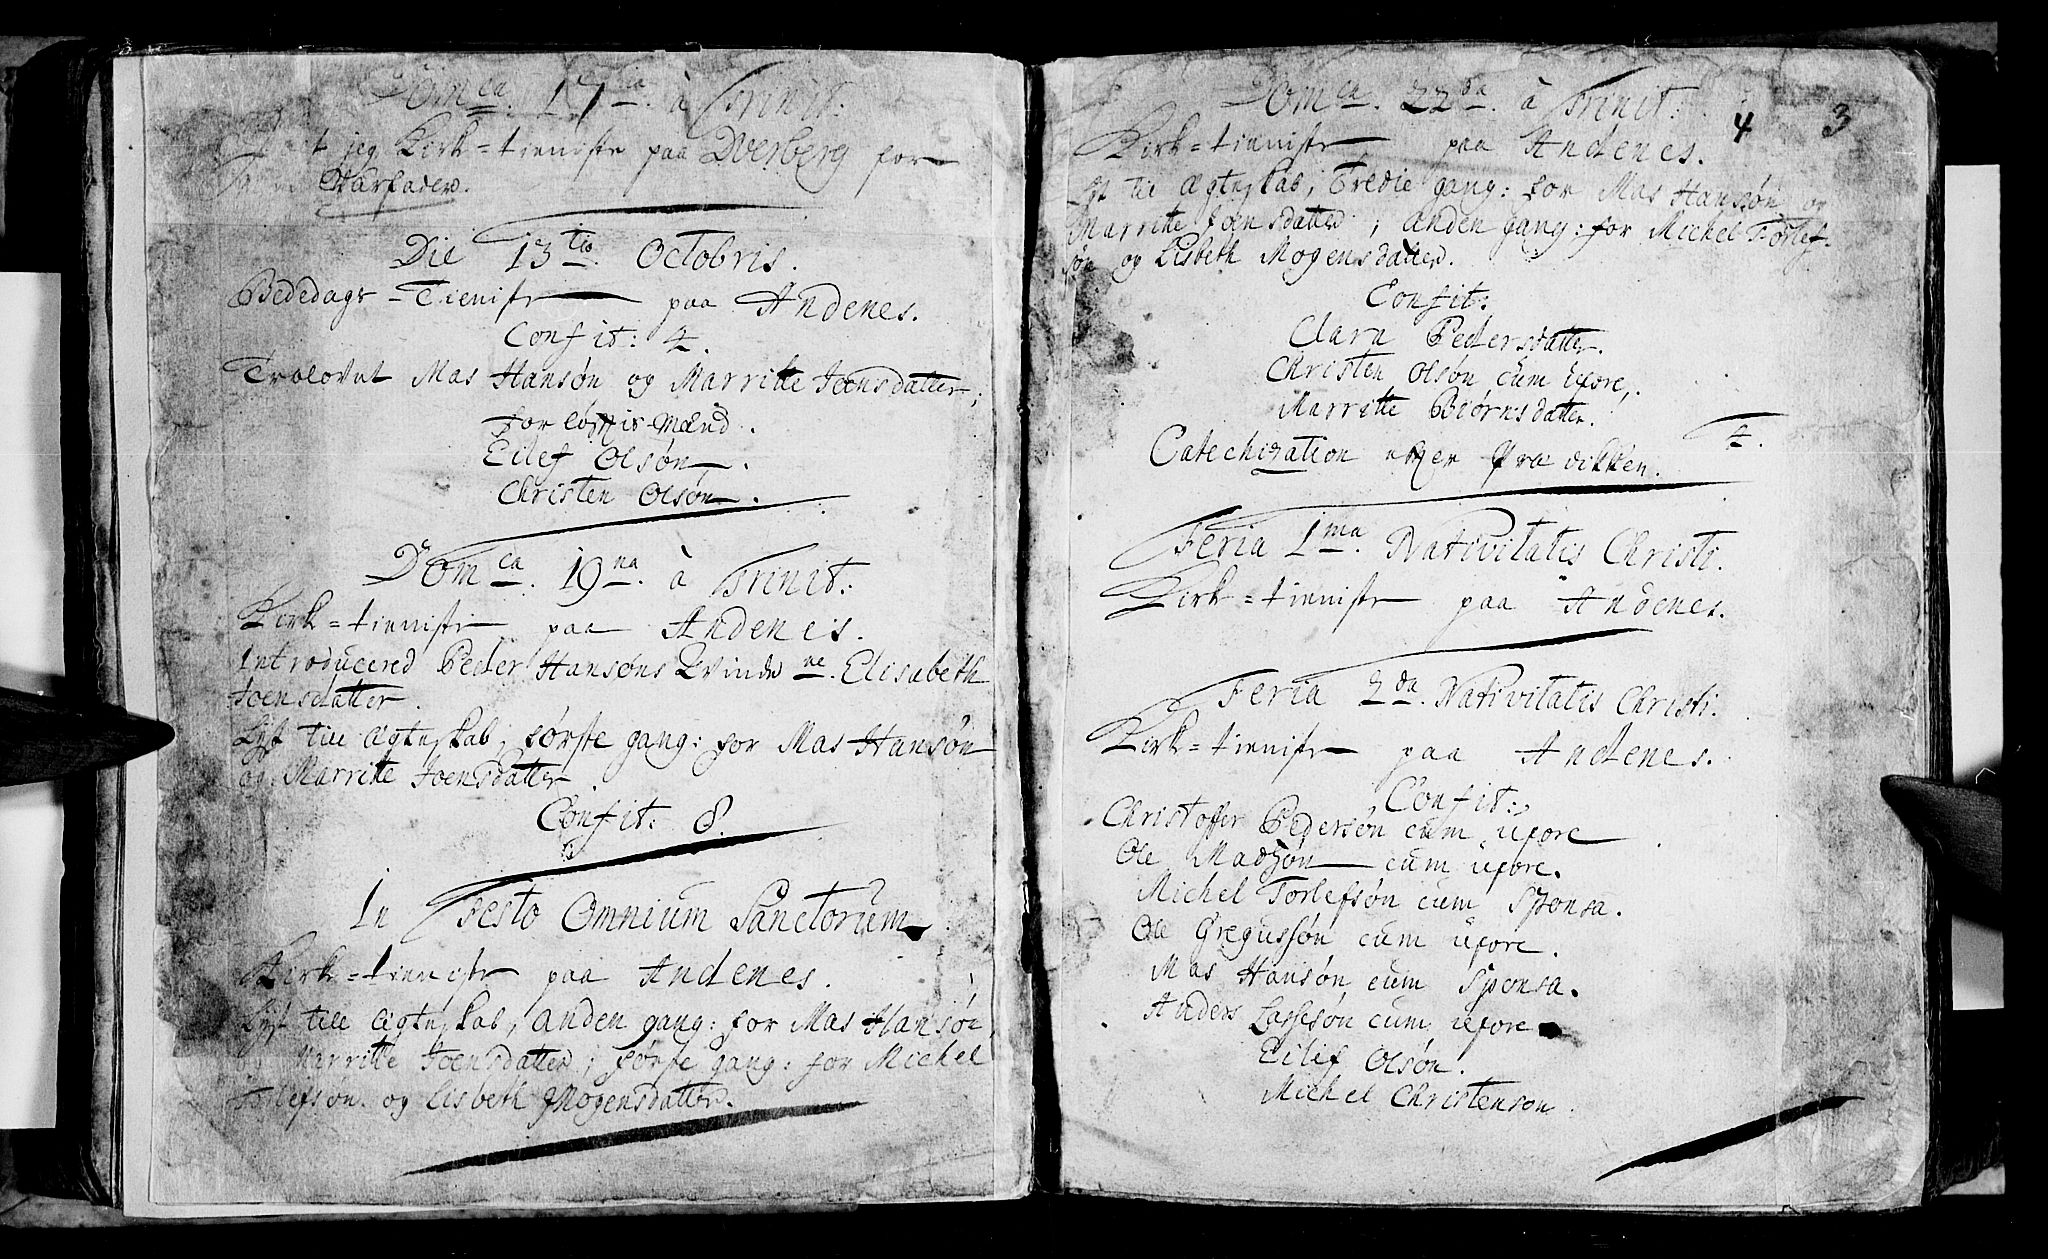 Domca. 17ma. à Trinit:
jeg Kirk=tieniste paa Dverberg for
Die 13tio. Octobris.
Bededags=Tieniste paa Andenes.
Confit: 4.
Trolovet Mas Hansøn og Marritte Joensdatter;
forløftis-Mænd.
Eilef Olsøn.
Christen Olsøn.
Domca. 19na. à Trinit:
Kirk=tieniste paa Andenes.
Introducered Peder Hansøns Qvinde ne. Elisabeth
Joensdatter.
Lyst till Ægteskab, første gang: for Mas Hansøn
og Marritte Joensdatter
Confit: 8.
In Festo Omnium Sanctorum
Kirk=tieniste paa Andenes.
Lyst till Ægteskab, anden gang: for Mas Hansøn,
og Marritte Joensdatter; første gang: for Michel
Torlefsøn og Lisbeth Mogensdatter.
4 3
Domca. 22da. à Trinit:
Kirk=tieniste paa Andenes.
Lyst till Ægteskab, Tredie gang: for Mas Hansøn og
Marritte Joensdatter; anden gang: for Michel Torlef-
søn og Lisbeth Mogensdatter.
Confit:
Clara Pedersdatter.
Christen Olsøn cum uxore,
Marritte Biørnsdatter.
4.
Catechization efter Prædikken.
Feria 1ma. Nativitatis Christi.
Kirk=tieniste paa Andenes.
Feria 2da. Nativitatis Christi.
Kirk=tieniste paa Andenes.
Confit:
Christoffer Pedersøn cum uxore
Ole Madsøn cum uxore.
Michel Torlefsøn cum Sponsa.
Ole Gregussøn cum uxore.
Mas Hansøn cum Sponsa.
Anders Lassesøn cum uxore
Eilif Olsøn.
Michel Christensøn.